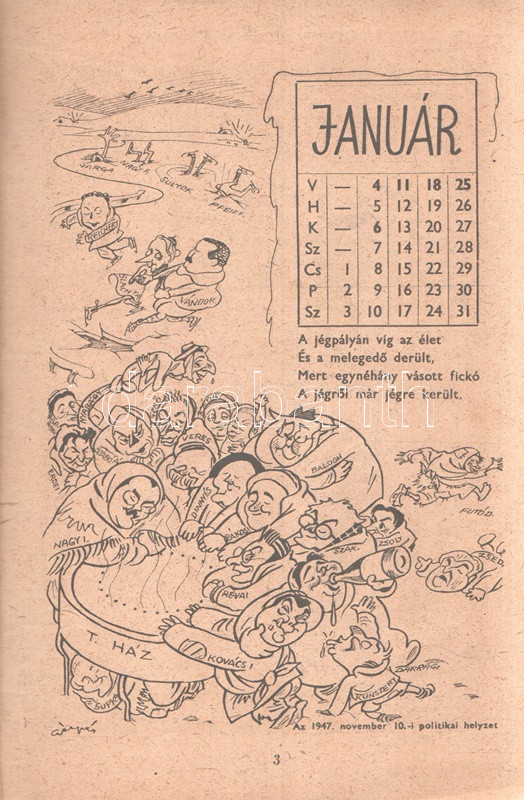 JANUÁR
V — 4 11 18 25
H — 5 12 19 26
K — 6 13 20 27
Sz — 7 14 21 28
Cs 1 8 15 22 29
P 2 9 16 23 30
Sz 3 10 17 24 31
A jégpályán víg az élet
És a melegedő derült,
Mert egynéhány vásott fickó
A jégről már jégre került.
VARGA
NAGY F.
SULYOK
PFEIFF.
VANDOR
darabanth
VERES
BALOGH
DINNYÉS
NAGY I.
RÉVAI
SZAK.
ZSOLT
FUTÓD.
ZSED.
T. HÁZ
KOVÁCS I
SUPKA
KUNSZERI
SÁRRÁGI
Az 1947. november 10.-i politikai helyzet
3